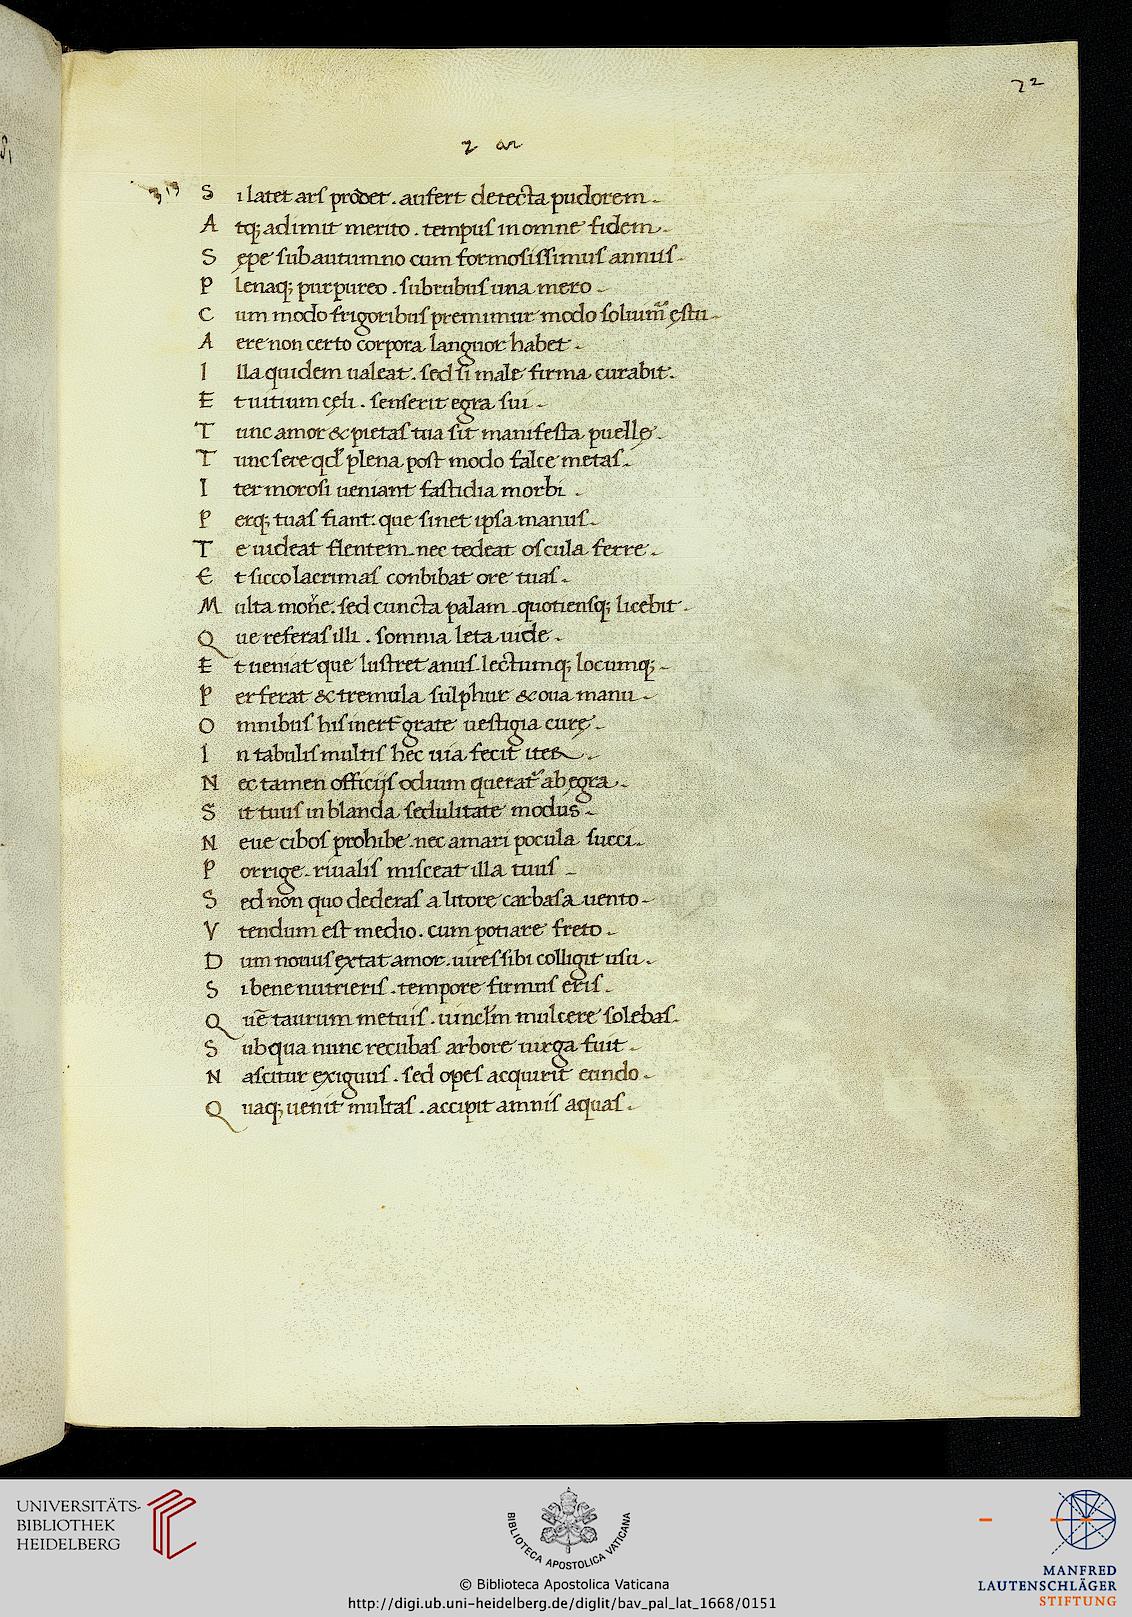 72
2 ar
313
S ılatet ars prodet . aufert detecta pudorem .
A tq; adimit merito . tempus in omne fidem .
S ępe sub autumno cum formosissimus annus .
P lenaq; purpureo . subrubus una mero .
C um modo frigoribus premimur modo soluimur ęstu .
A ere non certo corpora languor habet .
I lla quidem ualeat . sed si male firma curabit .
E t uitium cęli . senserit egra sui .
T unc amor & pietas tua sit manifesta puellę .
T unc sere qd plena post modo falce metas .
I ter morosi ueniant fastidia morbi .
P erq; tuas fiant . que sinet ipsa manus .
T e uideat flentem . nec tedeat oscula ferre .
E t sicco lacrimas conbibat ore tuas .
M ulta mone . sed cuncta palam . quotiensq; licebit .
Q ue referas illi . somnia leta uide .
E t ueniat que lustret anus . lectumq; locumq; .
P erferat & tremula sulphur & oua manu .
O mnibus his inert grate uestigia curę .
I n tabulis multis hęc uia fecit iter .
N ec tamen officijs odium querat ab egra .
S it tuus in blanda sedulitate modus .
N eue cibos prohibe . nec amari pocula succi .
P orrige . riualis misceat illa tuus .
S ed non quo dederas a litore carbasa uento .
V tendum est medio . cum potiare freto .
D um nouus extat amor . uires sibi colligit usu .
S ı bene nutrieris . tempore firmus eris .
Q uē taurum metuis . uinclm mulcere solebas .
S ub qua nunc recubas arbore uirga fuit .
N ascitur exiguus . sed opes acquirit eundo .
Q uaq; uenit multas . accipit amnis aquas .
UNIVERSITÄTS-
BIBLIOTHEK
HEIDELBERG
BIBLIOTECA APOSTOLICA VATICANA
MANFRED
LAUTENSCHLÄGER
STIFTUNG
© Biblioteca Apostolica Vaticana
http://digi.ub.uni-heidelberg.de/diglit/bav_pal_lat_1668/0151